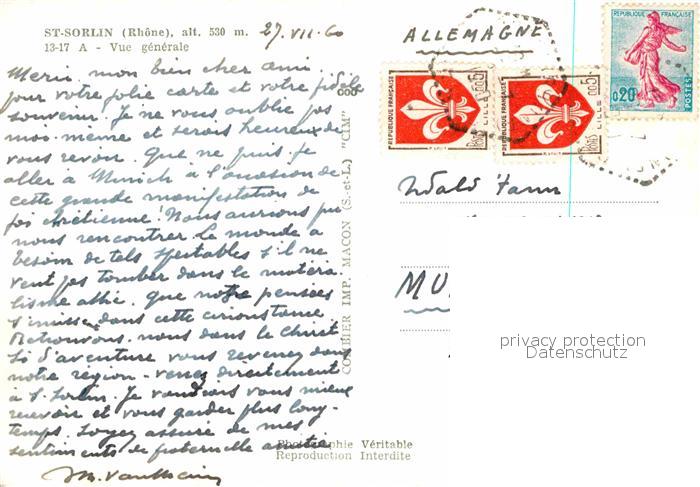 ST-SORLIN (Rhône), alt. 530 m. 27.VII.60
13-17 A - Vue générale
Merci mon bien cher ami
pour votre jolie carte et votre fidèle
souvenir. Je ne vous oublie pas
moi-même et serais heureux de
vous revoir. Que ne puis je
aller à Munich à l'occasion de
cette grande manifestation de
foi chrétienne! Nous aurions pu
nous rencontrer. Le monde a
besoin de tels spectables s'il ne
veut pas tomber dans le matéria
lisme athée. Que notre pensées
s'unisse dans cette circonstance
Retrouvons-nous dans le Christ
Si d'aventure vous revenez dans
notre région - venez directement
à S. Sorlin. Je voudrais vous mieux
recevoir et vous garder plus long-
temps. Soyez assuré de mes
sentiments de fraternelle amitié
COMBIER IMP. MACON (S.-et-L.) "CIM"
Photographie Véritable
Reproduction Interdite
ALLEMAGNE
REPUBLIQUE FRANÇAISE
POSTES
0,20
REPUBLIQUE FRANÇAISE
LILLE
0,05
POSTES
REPUBLIQUE FRANÇAISE
LILLE
0,05
POSTES
MU
privacy protection
Datenschutz